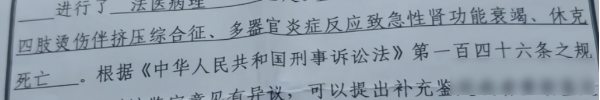 进行了 法医病理
四肢烫伤伴挤压综合征、多器官炎症反应致急性肾功能衰竭、休克
死亡 。根据《中华人民共和国刑事诉讼法》第一百四十六条之规
意见有异议，可以提出补充鉴